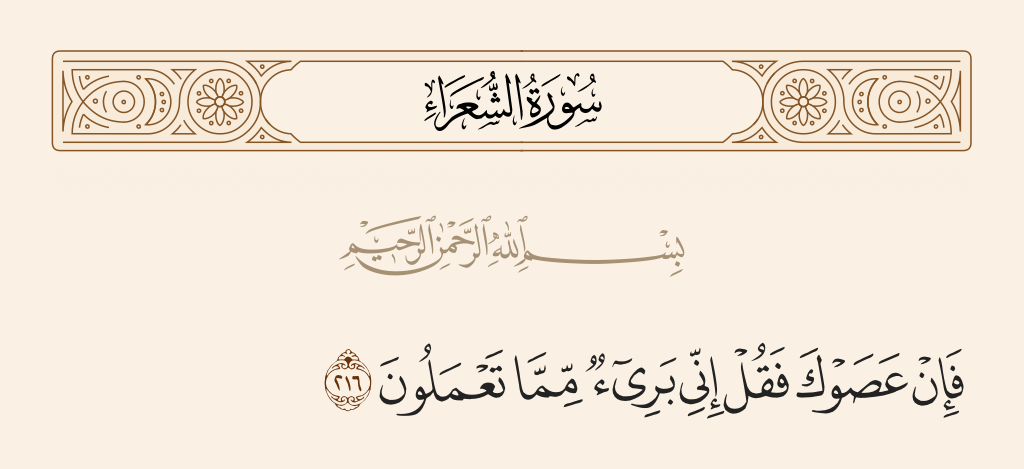 سُورَةُ الشُّعَرَاءِ
بِسْمِ ٱللَّهِ ٱلرَّحْمَٰنِ ٱلرَّحِيمِ
فَإِنْ عَصَوْكَ فَقُلْ إِنِّى بَرِىٓءٌ مِّمَّا تَعْمَلُونَ ٢١٦